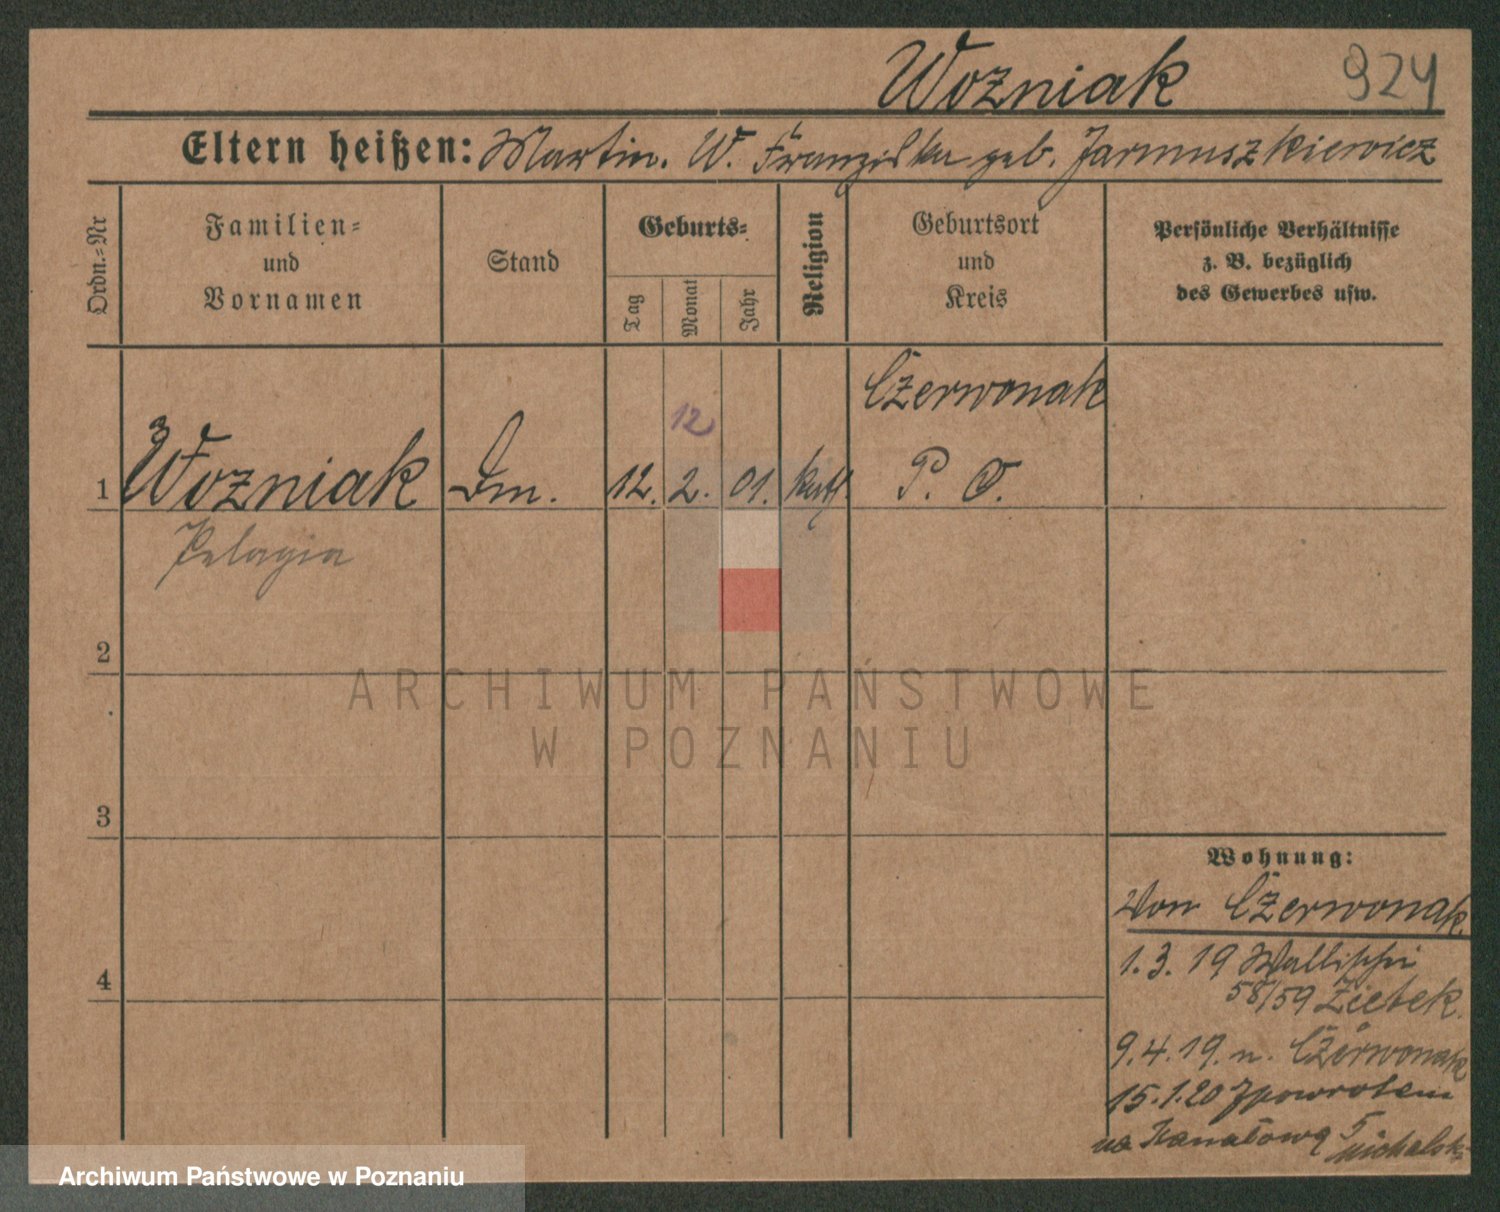 Wozniak 924
Eltern heißen: Martin. W. Franziska geb. Jarmuszkiewicz
Ordn.-Nr
Familien-
und
Vornamen
Stand
Geburts-
Tag
Monat
Jahr
Religion
Geburtsort
und
Kreis
Persönliche Verhältnisse
z. B. bezüglich
des Gewerbes usw.
Czerwonak
12
1 Wozniak Dm. 12. 2. 01. kath. P. O.
Pelagia
2
ARCHIWUM PAŃSTWOWE
W POZNANIU
3
Wohnung:
Von Czerwonak.
1.3.19 Wallischei
58/59 Zietek.
4
9.4.19. n. Czerwonak
15.1.20 Zpowrotem
na Kanałową 5 Michalski
Archiwum Państwowe w Poznaniu